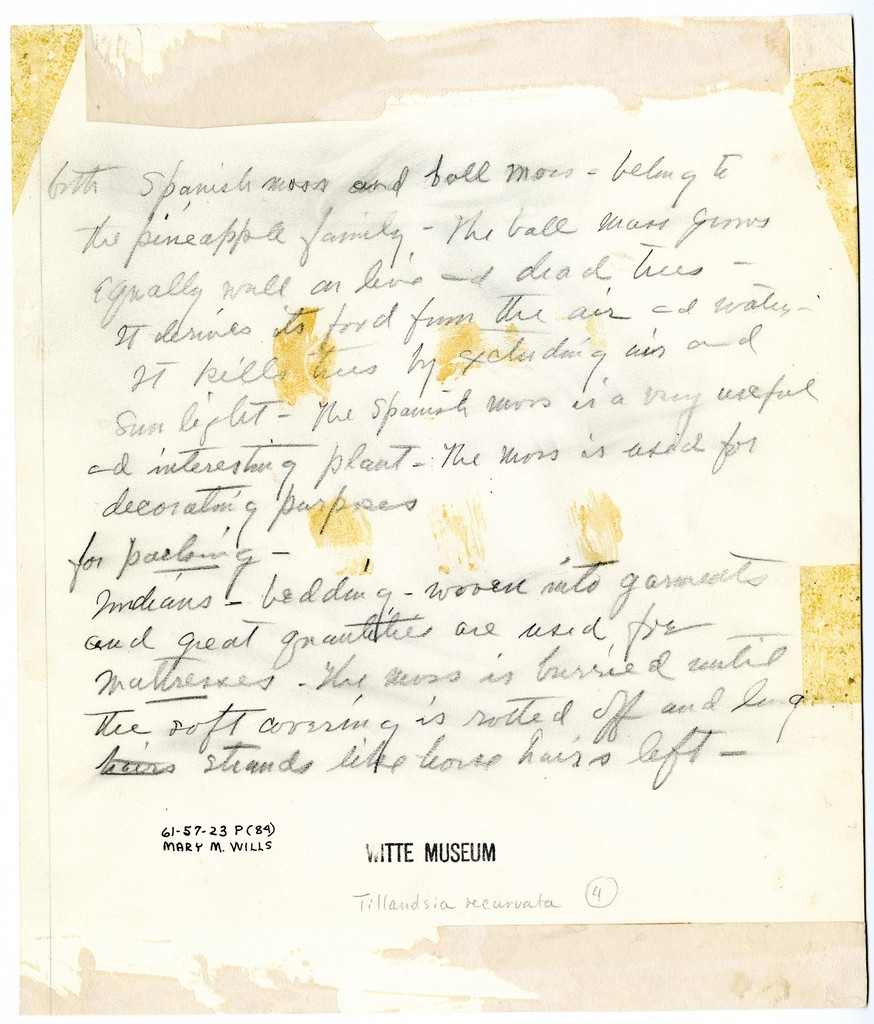 both Spanish moss and ball moss - belong to
the pineapple family - The ball moss grows
Equally well on live and dead trees -
It derives its food from the air and water -
It kills trees by excluding air and
Sun light - The Spanish moss is a very useful
and interesting plant - The moss is used for
decorating purposes
for packing -
Indians - bedding - woven into garments
and great quantities are used for
Mattresses - The moss is burried until
the soft covering is rotted off and long
hairs strands like horse hairs left -
61-57-23 P(84)
MARY M. WILLS
WITTE MUSEUM
Tillandsia recurvata 4